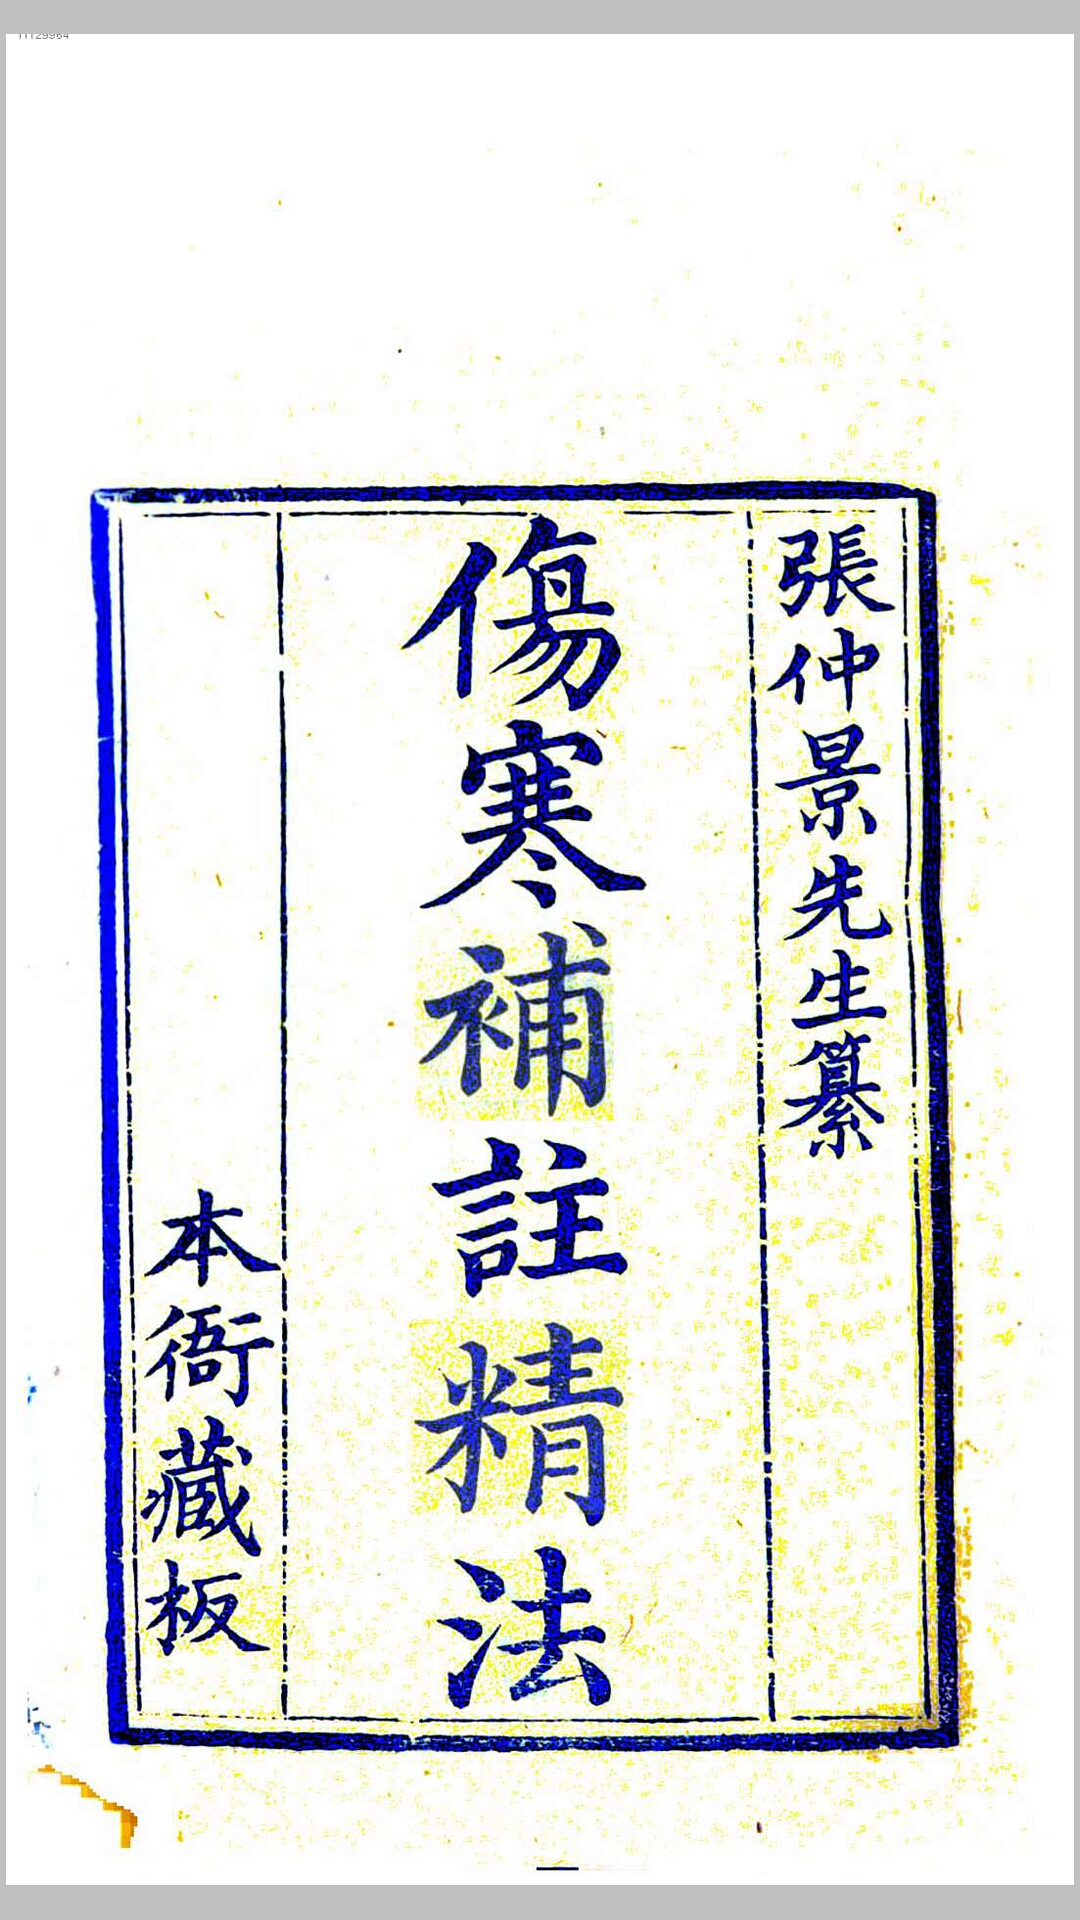 張仲景先生纂
傷寒補註精法
本衙藏板